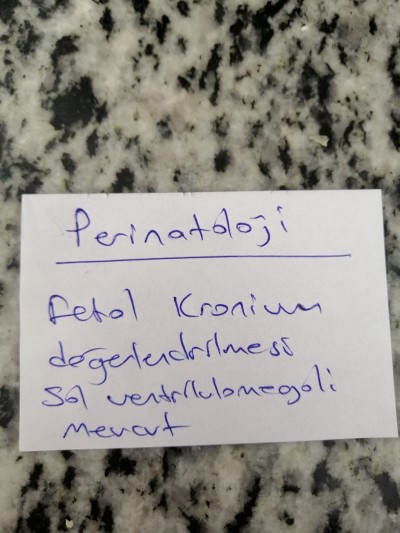 Perinatoloji
Fetal Kranium
değerlendirilmesi
Sol ventrikulomegali
mevcut